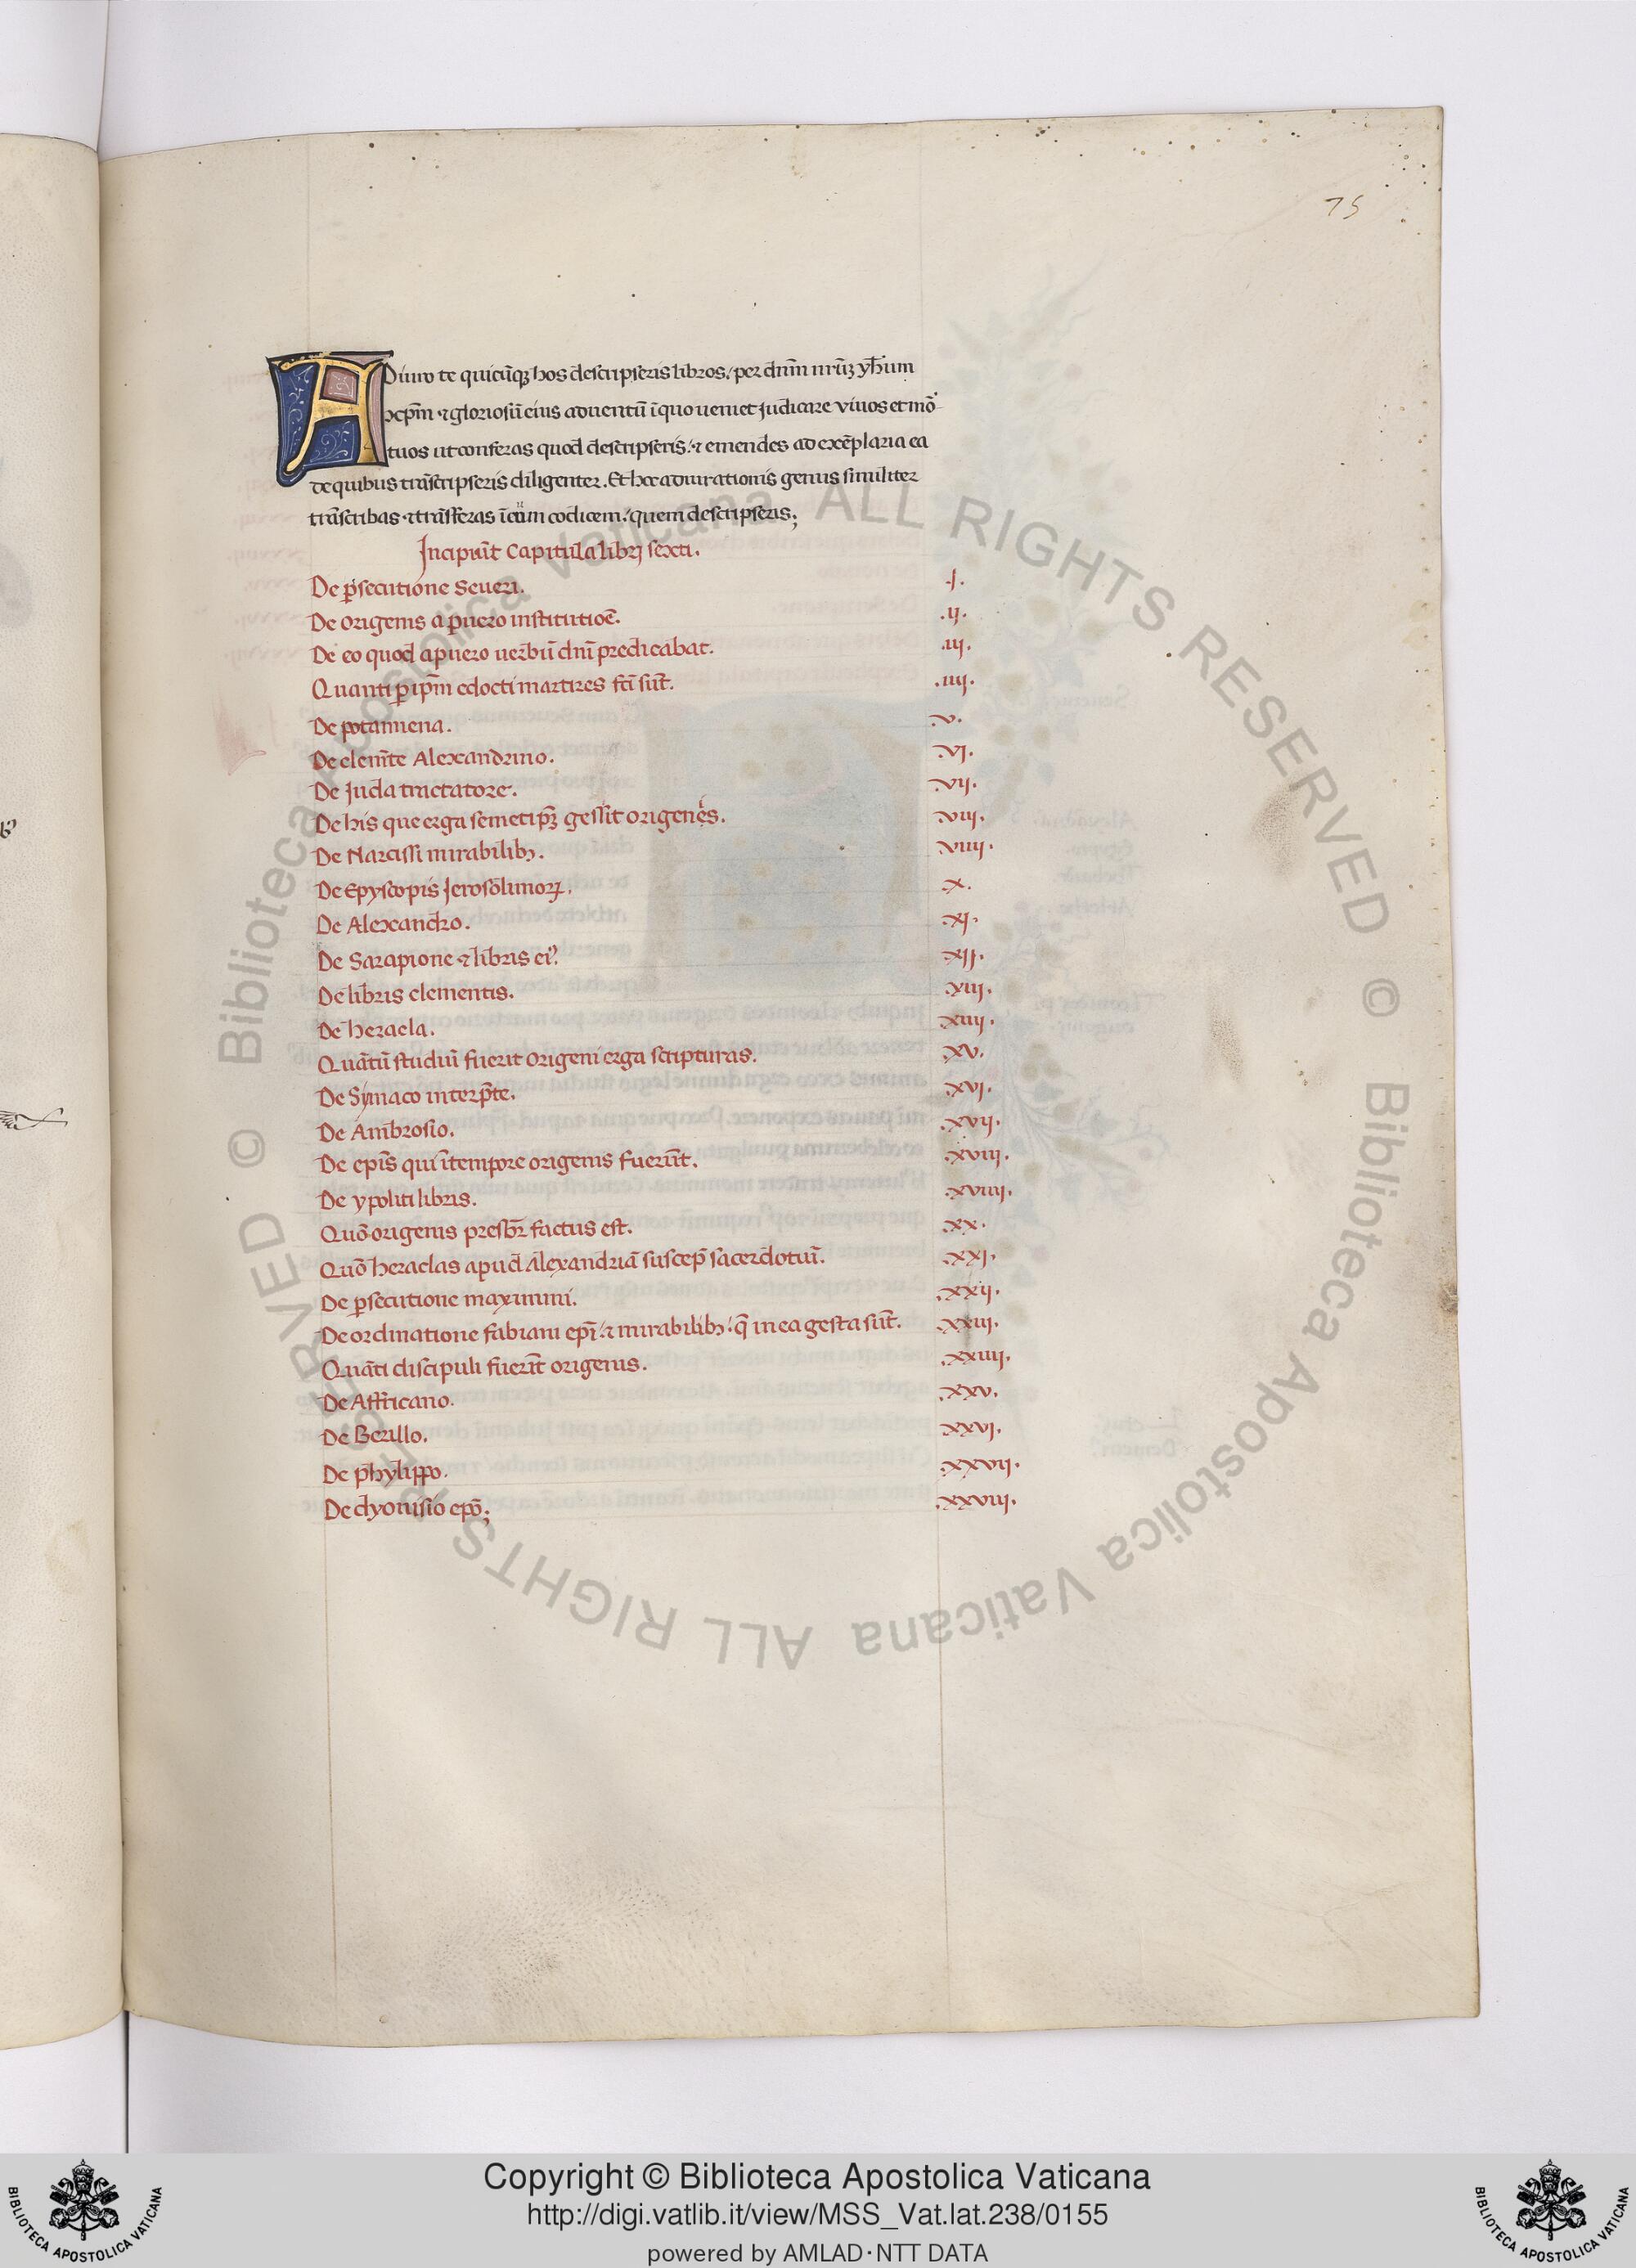 75
ADiuro te quicūqꝫ hos descripseris libros / per dn̄m nr̄ūꝫ yħum
xp̄m ⁊ gloriosū eius aduentū ī quo ueniet judicare viuos et mō-
tuos ut conferas quod descripseris / ⁊ emendes ad exēplaria ea
de quibus trāscripseris diligenter. Et hoc adiurationis genus similiter
trāscribas ⁊ trāsferas ī eūm codicem / quem descripseris;
Incipiūt Capitula libri sexti.
De ꝑsecutione Seueri. .I.
De origenis a puero institutiōe. .ij.
De eo quod a puero uerbū dn̄i predicabat. .iij.
Quanti ꝑ ip̄m edocti martires fc̄i sūt. .iiij.
De potamiena. v.
De clem̄te Alexandrino. vj.
De juda tractatore. vij.
De his que erga semetip̄ꝫ gessit origenes. viij.
De Narcissi mirabilibꝫ. viiij.
De Epyscopis Jerosolimoꝝ. x.
De Alexandro. xj.
De Sarapione ⁊ libris eiꝰ. xij.
De libris clementis. xiij.
De heracla. xiiij.
Quātū studiū fuerit origeni erga scripturas. xv.
De Symaco interp̄te. xvj.
De Ambrosio. xvij.
De ep̄is qui ī tempore origenis fuerūt. xviij.
De ypoliti libris. xviiij.
Quō origenis presbr̄ factus est. xx.
Quō heraclas apud Alexandriā suscep̄ sacerdotiū. xxj.
De ꝑsecutione maximini. xxij.
De ordinatione fabiani ep̄i / ⁊ mirabilibꝫ / q̄ in ea gesta sūt. xxiij.
Quāti discipuli fuerūt origenis. xxiiij.
De Affricano. xxv.
De Berillo. xxvj.
De phylippo. xxvij.
De dyonisio ep̄o; xxviij.
© Biblioteca Apostolica Vaticana ALL RIGHTS RESERVED © Biblioteca Apostolica Vaticana ALL RIGHTS RESERVED
BIBLIOTECA APOSTOLICA VATICANA
Copyright © Biblioteca Apostolica Vaticana
http://digi.vatlib.it/view/MSS_Vat.lat.238/0155
powered by AMLAD·NTT DATA
BIBLIOTECA APOSTOLICA VATICANA